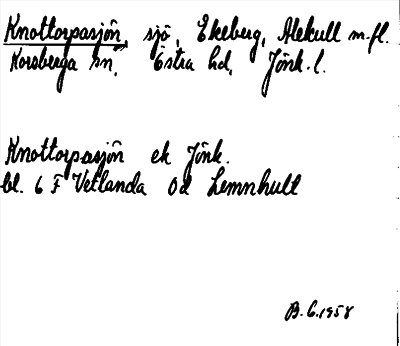 Knottorpasjön, sjö, Ekeberg, Alekull m.fl.
Korsberga sn, Östra hd, Jönk. l.
Knottorpasjön ek Jönk.
bl. 6 F Vetlanda Od Lemnhult
B.G. 1958